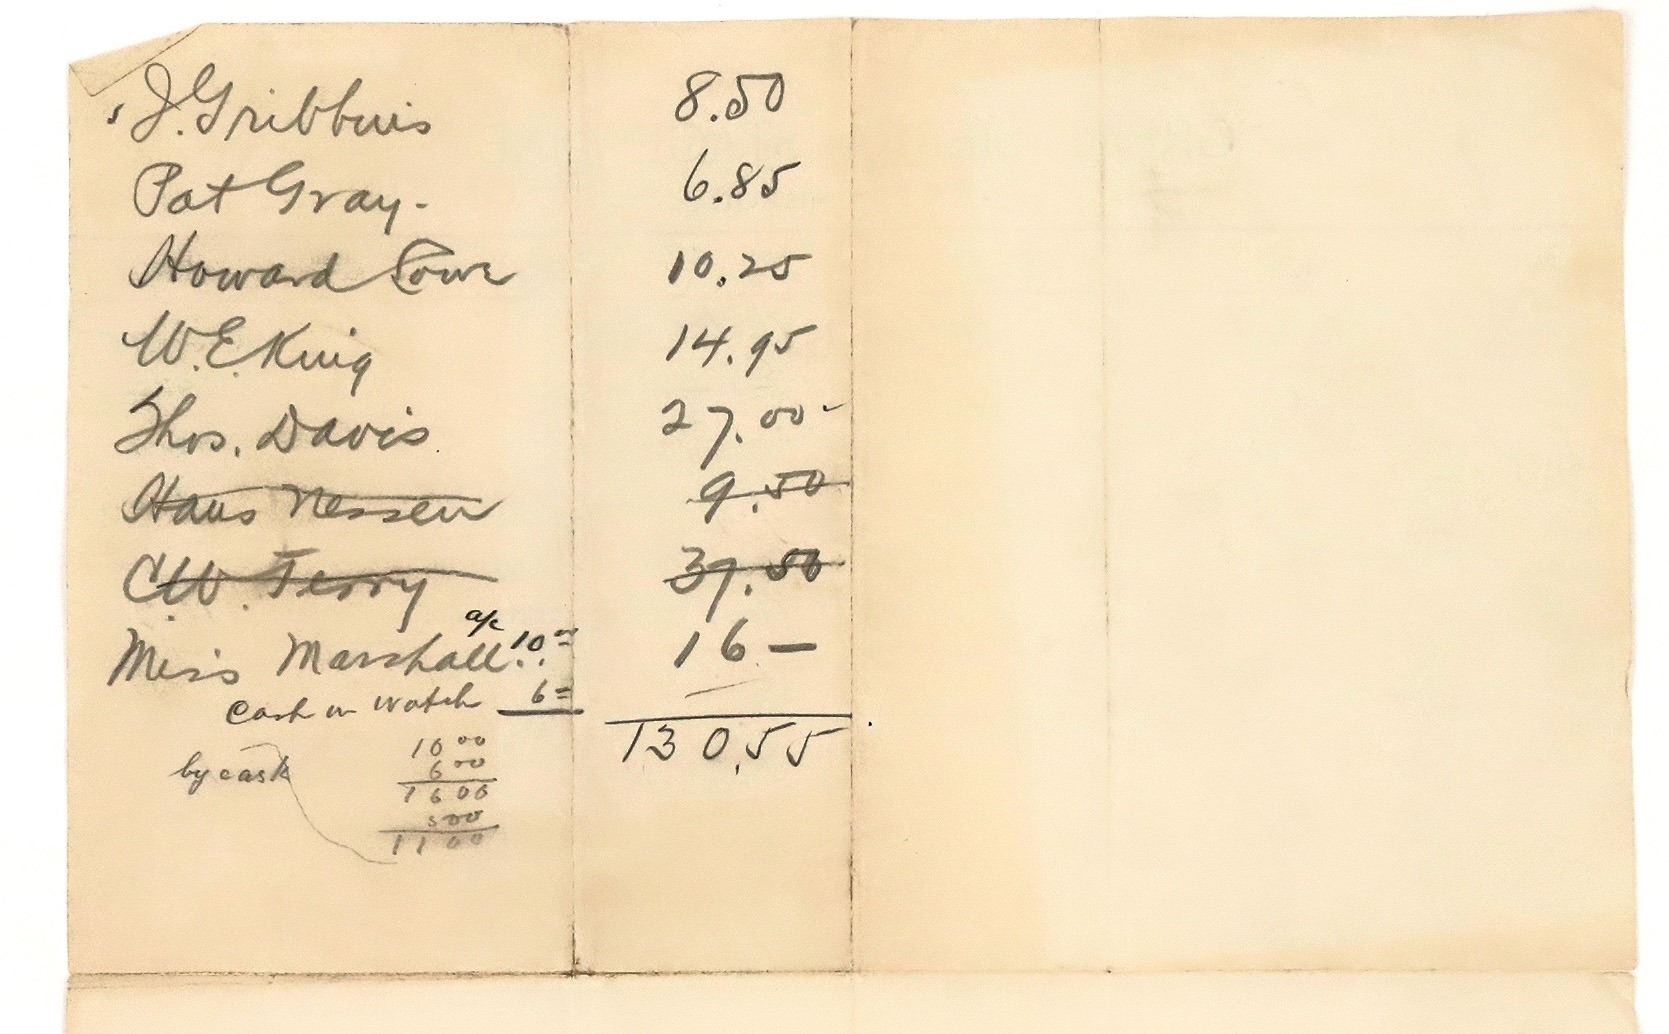 J. Gribbins 8.50
Pat Gray. 6.85
Howard 10.25
W.E. King 14.95
Thos. Davis 27.00
Hans Nessen 9.50
C.W. Terry 37.50
Miss Marshall a/c 10 00 16 —
Cash on watch 6 =
130.55
by cash 10 00
6 00
16 00
5 00
11 00